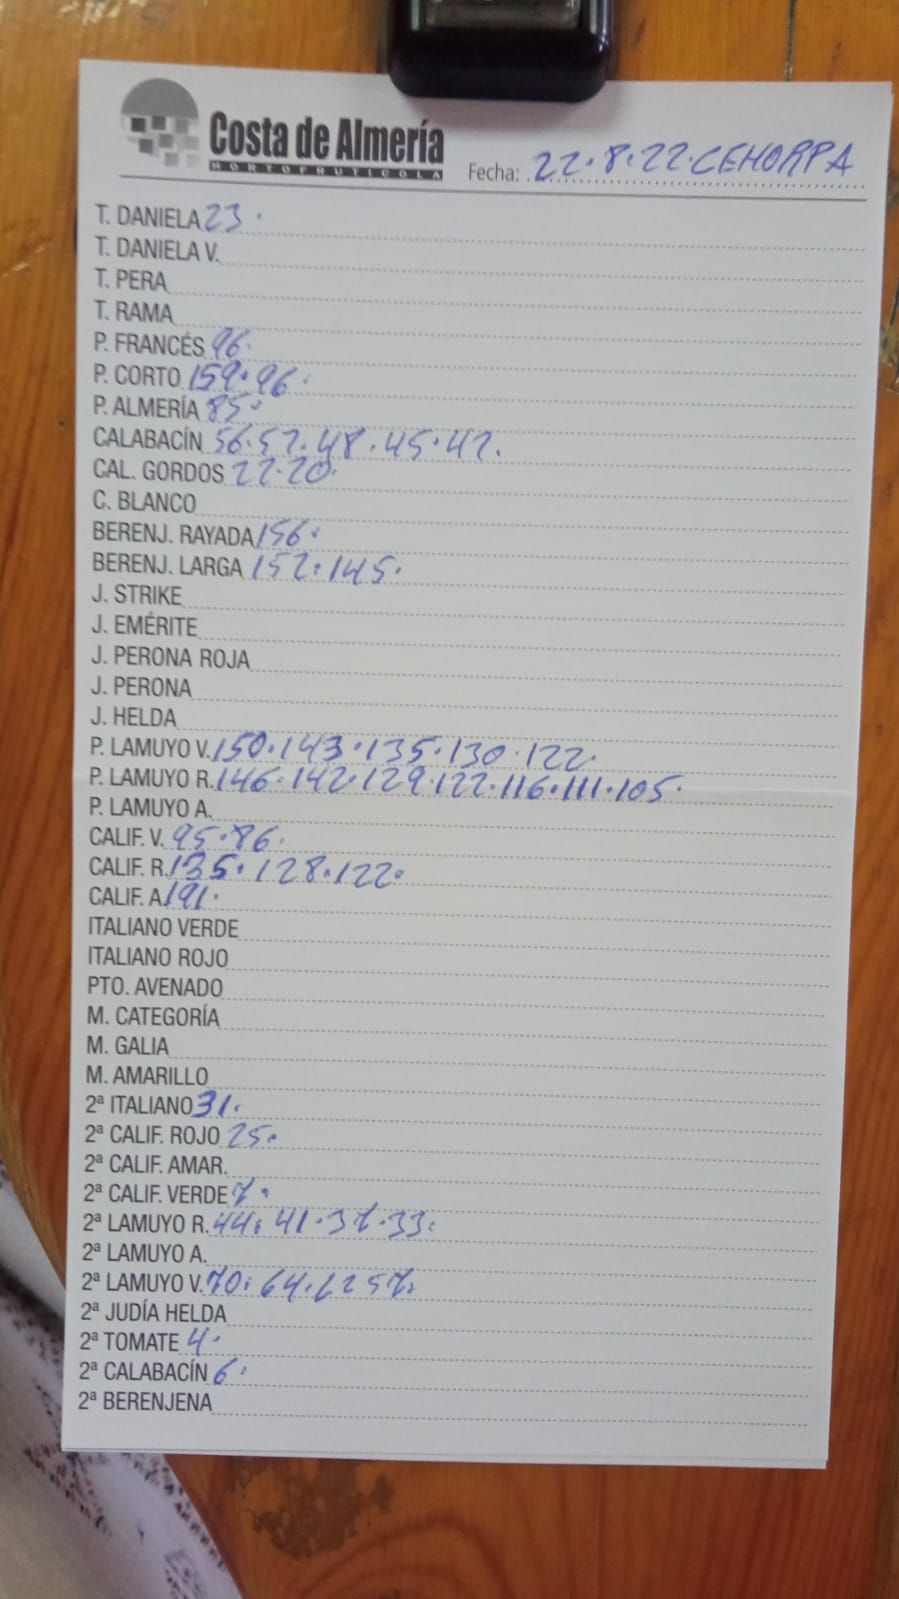 Costa de Almería
HORTOFRUTICOLA
Fecha: 22.8.22.CEHORPA
T. DANIELA 23.
T. DANIELA V.
T. PERA
T. RAMA
P. FRANCÉS 96.
P. CORTO 159.96.
P. ALMERÍA 85.
CALABACÍN 56.52.48.45.42.
CAL. GORDOS 22.20.
C. BLANCO
BERENJ. RAYADA 156.
BERENJ. LARGA 152.145.
J. STRIKE
J. EMÉRITE
J. PERONA ROJA
J. PERONA
J. HELDA
P. LAMUYO V. 150.143.135.130.122.
P. LAMUYO R. 146.142.129.122.116.111.105.
P. LAMUYO A.
CALIF. V. 95.86.
CALIF. R. 135.128.122.
CALIF. A. 191.
ITALIANO VERDE
ITALIANO ROJO
PTO. AVENADO
M. CATEGORÍA
M. GALIA
M. AMARILLO
2ª ITALIANO 31.
2ª CALIF. ROJO 25.
2ª CALIF. AMAR.
2ª CALIF. VERDE 7.
2ª LAMUYO R. 44.41.37.33.
2ª LAMUYO A.
2ª LAMUYO V. 70.64. 57.
2ª JUDÍA HELDA
2ª TOMATE 4.
2ª CALABACÍN 6.
2ª BERENJENA